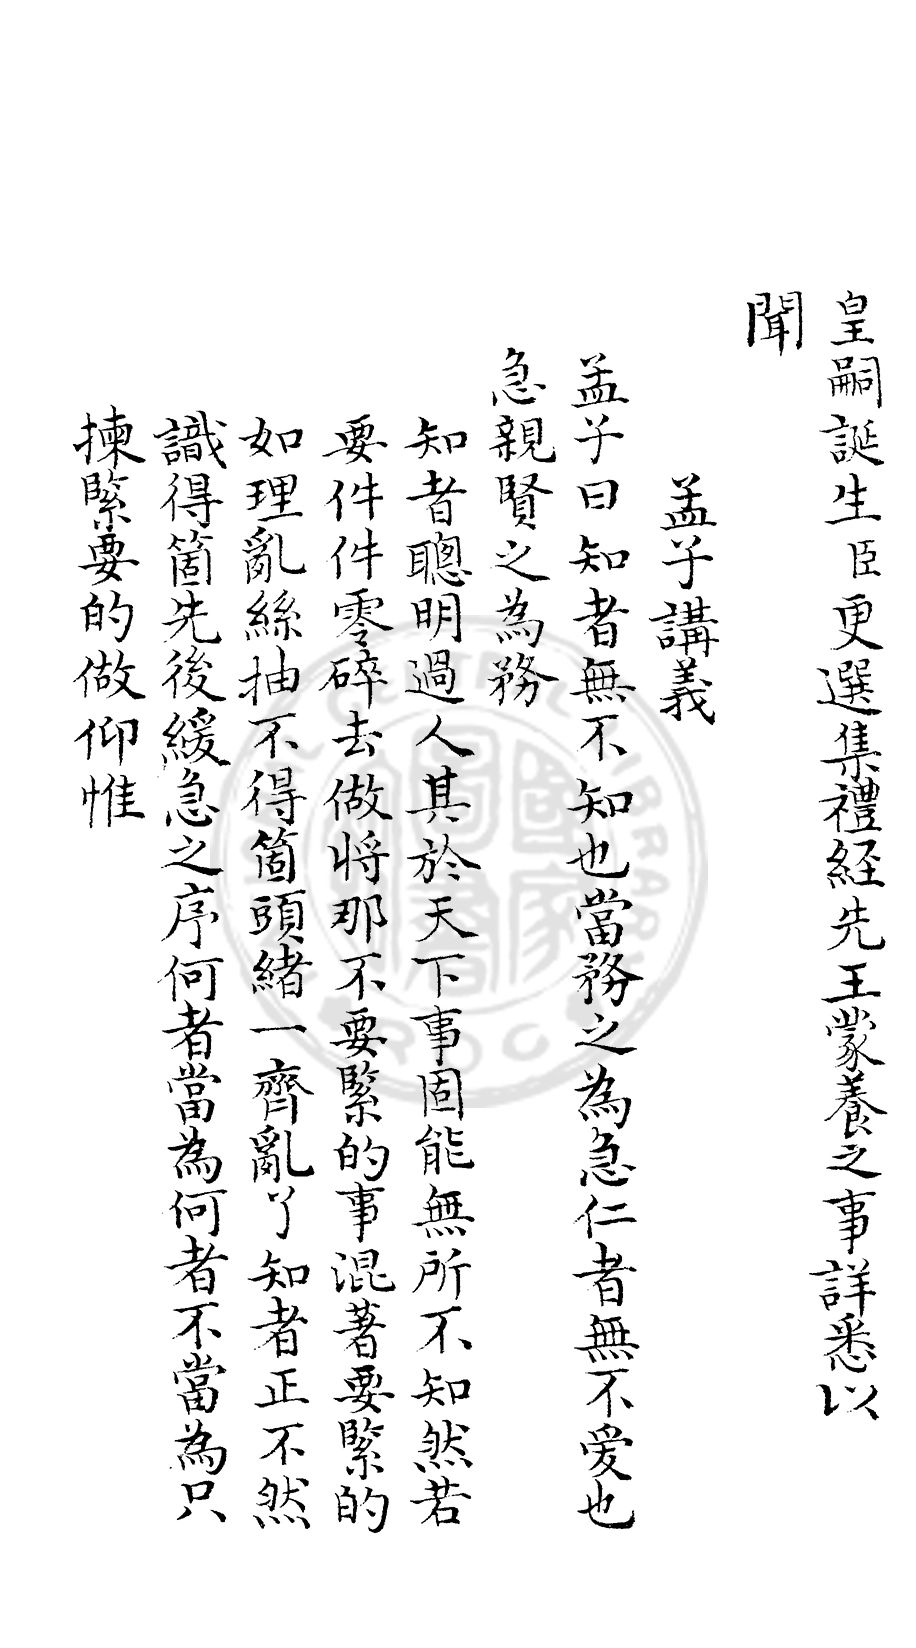 皇嗣誕生臣更選集禮經先王蒙養之事詳悉以
聞
孟子講義
孟子曰知者無不知也當務之為急仁者無不愛也
急親賢之為務
知者聰明過人其於天下事固能無所不知然若
要件件零碎去做將那不要緊的事混著要緊的
如理亂絲抽不得箇頭緒一齊亂了知者正不然
識得箇先後緩急之序何者當為何者不當為只
揀緊要的做仰惟